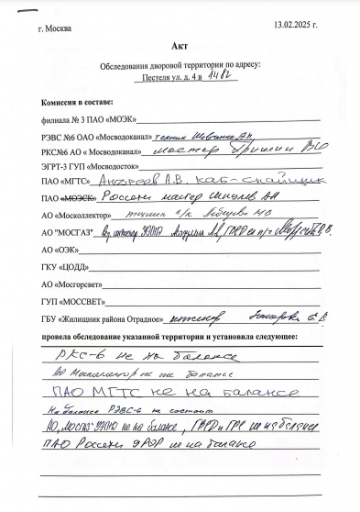 г. Москва 13.02.2025 г.
Акт
Обследования дворовой территории по адресу:
Пестеля ул. д. 4 в
Комиссия в составе:
филиала № 3 ПАО «МОЭК»
РЭВС №6 ОАО «Мосводоканал» техник Шевченко
РКС№6 АО « Мосводоканал» мастер Гришин
ЭГРТ-3 ГУП «Мосводосток»
ПАО «МГТС» Андреев А.В. каб-спайщик
ПАО «МОЭСК» Россети мастер
АО «Москоллектор»
АО "МОСГАЗ"
АО «ОЭК»
ГКУ «ЦОДД»
АО «Мосгорсвет»
ГУП «МОССВЕТ»
ГБУ «Жилищник района Отрадное» инженер
провела обследование указанной территории и установила следующее:
РКС-6 не на балансе
АО Москоллектор не на балансе
ПАО МГТС не на балансе
На балансе РЭВС-6 не состоит
АО "МОСГАЗ" не на балансе, не на балансе
ПАО Россети не на балансе